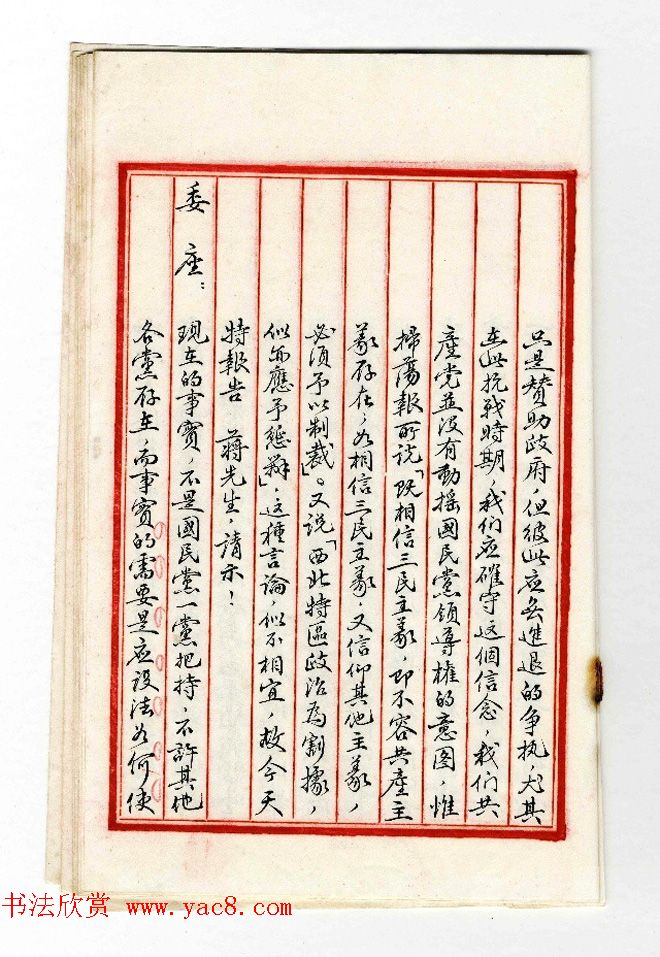 只是贊助政府，但彼此应無進退的争执尤其
在此抗战時期，我们应確守这個信念，我们共
產党並没有動摇國民黨領導權的意图，惟
掃蕩報所说「既相信三民主義，即不容共產主
義存在，如相信三民主義，又信仰其他主義，
必须予以制裁」。又说「西北特區政治為割據，
似亦應予懲辦」，这種言論，似不相宜，故今天
特報告 蔣先生，請示！
委座：
現在的事實，不是國民黨一黨把持，不許其他
各黨存在，而事實的需要是应设法如何使
书法欣赏 www.yac8.com